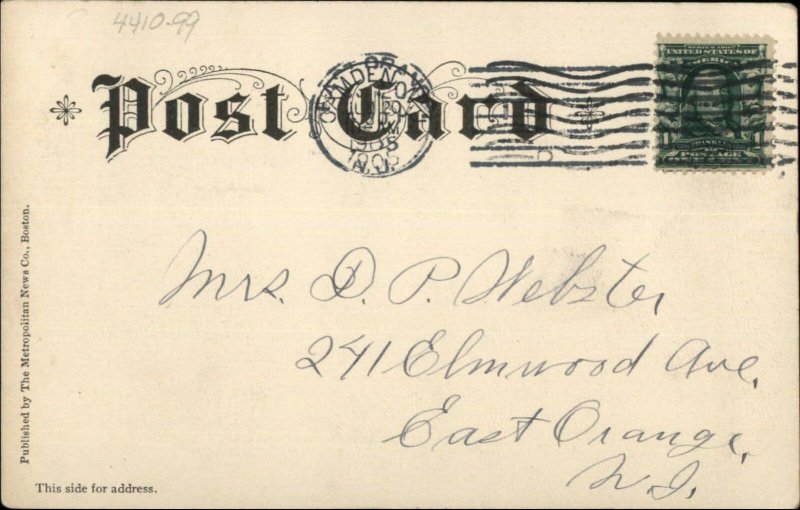 4410-99
Post Card
1908
N.J.
SERIES 1902
UNITED STATES OF
AMERICA
POSTAGE
Mrs. D. P. Webster
241 Elmwood Ave.
East Orange,
N.J.
Published by The Metropolitan News Co., Boston.
This side for address.